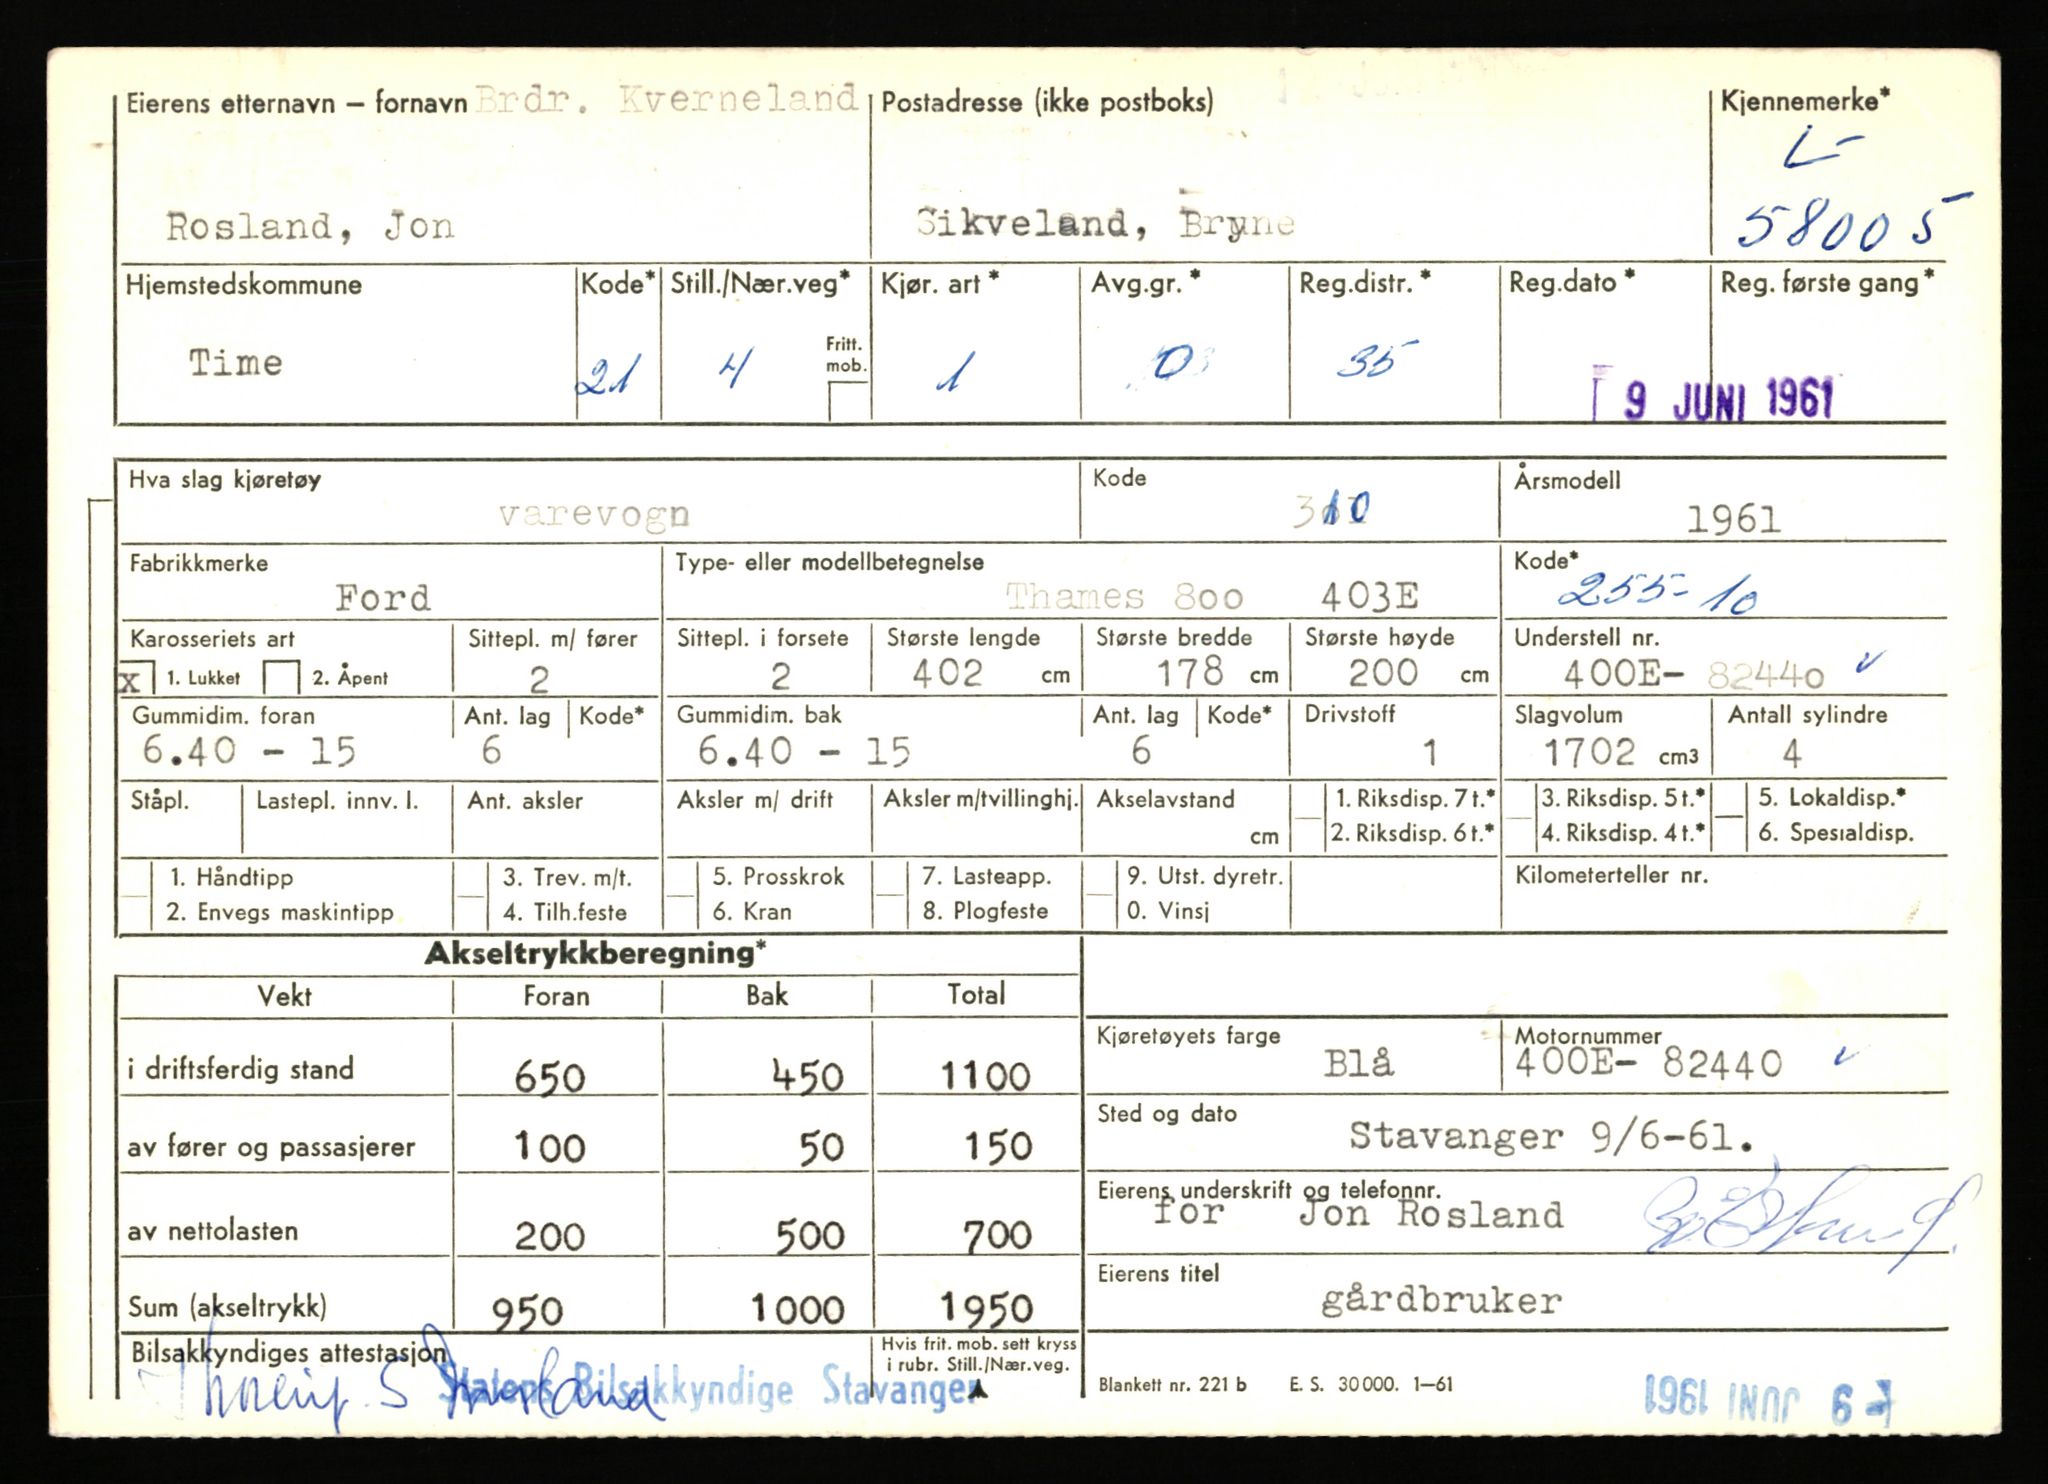 Eierens etternavn – fornavn Brdr. Kverneland Postadresse (ikke postboks) Kjennemerke*
L-
Rosland, Jon Sikveland, Bryne 58005
Hjemstedskommune Kode* Still./Nær.veg* Kjør. art* Avg.gr.* Reg.distr.* Reg.dato* Reg. første gang*
Time 21 4 Fritt. mob. 1 0 35
9 JUNI 1961
Hva slag kjøretøy Kode Årsmodell
varevogn 310 1961
Fabrikkmerke Type- eller modellbetegnelse Kode*
Ford Thames 800 403E 255-10
Karosseriets art Sittepl. m/ fører Sittepl. i forsete Største lengde Største bredde Største høyde Understell nr.
X 1. Lukket 2. Åpent 2 2 402 cm 178 cm 200 cm 400E- 82440 ✓
Gummidim. foran Ant. lag Kode* Gummidim. bak Ant. lag Kode* Drivstoff Slagvolum Antall sylindre
6.40 - 15 6 6.40 - 15 6 1 1702 cm3 4
Ståpl. Lastepl. innv. l. Ant. aksler Aksler m/ drift Aksler m/tvillinghj. Akselavstand cm 1. Riksdisp. 7 t.* 3. Riksdisp. 5 t.* 5. Lokaldisp.*
2. Riksdisp. 6 t.* 4. Riksdisp. 4 t.* 6. Spesialdisp.
1. Håndtipp 3. Trev. m/t. 5. Prosskrok 7. Lasteapp. 9. Utst. dyretr. Kilometerteller nr.
2. Envegs maskintipp 4. Tilh.feste 6. Kran 8. Plogfeste 0. Vinsj
Akseltrykkberegning*
Vekt Foran Bak Total
Kjøretøyets farge Motornummer
i driftsferdig stand 650 450 1100 Blå 400E- 82440 ✓
Sted og dato
av fører og passasjerer 100 50 150 Stavanger 9/6-61.
Eierens underskrift og telefonnr.
for Jon Rosland
av nettolasten 200 500 700
Eierens titel
Sum (akseltrykk) 950 1000 1950 gårdbruker
Bilsakkyndiges attestasjon Hvis frit. mob. sett kryss
i rubr. Still./Nær.veg.
Statens Bilsakkyndige Stavanger
Blankett nr. 221 b E. S. 30 000. 1–61
9 JUNI 1961